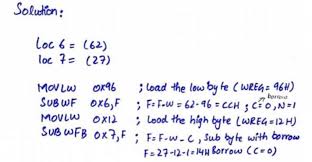 Solution:
Loc 6 = (62)
loc 7 = (27)
MOVLW 0x96 ; Load the low byte (WREG = 96H)
SUBWF 0x6,F ; F=F-W = 62-96 = CCH ; C=0, N=1
borrow
MOVLW 0x12 ; Load the high byte (WREG = 12H)
SUBWFB 0x7,F ; F=F-W-C, Sub byte with borrow
F=27-12-1=14H Borrow (C=0)